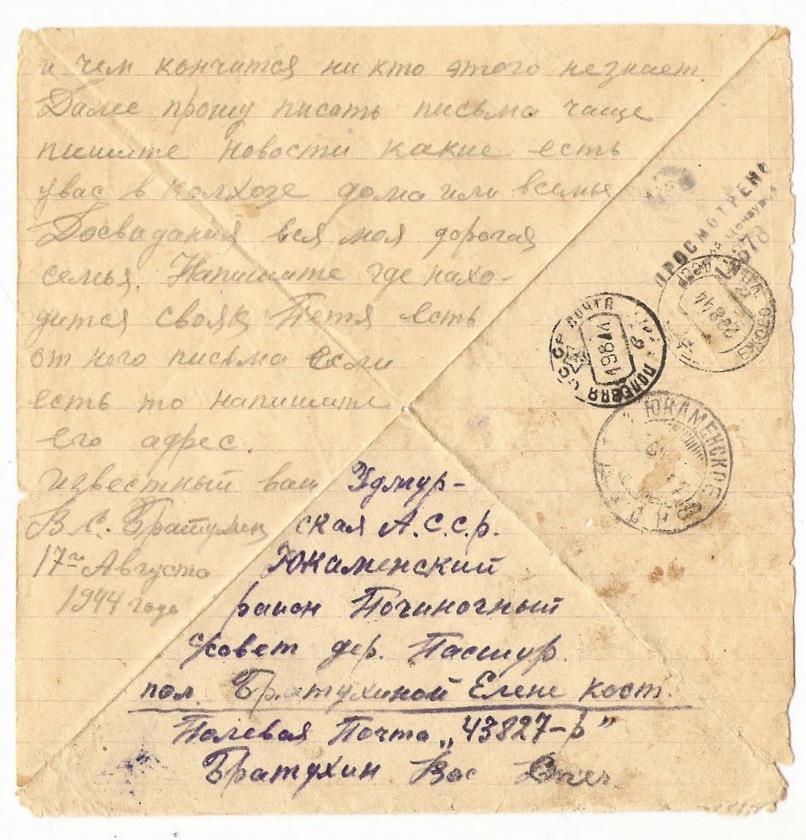 и чем кончится ни кто этого незнает.
Далее прошу писать письма чаще
пишите новости какие есть
увас в колхозе дома или всемье
Досвидания вся моя дорогая
семья. Напишите где нахо-
дится свояк Петя есть
от него письма если
есть то напишите
его адрес.
известный вам
В. С. Братухин
17го Августа
1944 года
Удмур-
ская А.С.С.р.
Юкаменский
район Починочный
совет дер. Пасшур.
пол. Братухиной Елене Кост.
Полевая Почта „43827-р"
Братухин Вас
ПРОСМОТРЕНО
СССР ПОЧТА
19 8 44
ПОЛЕВАЯ
22 8 44
ЮКАМЕНСКОЕ